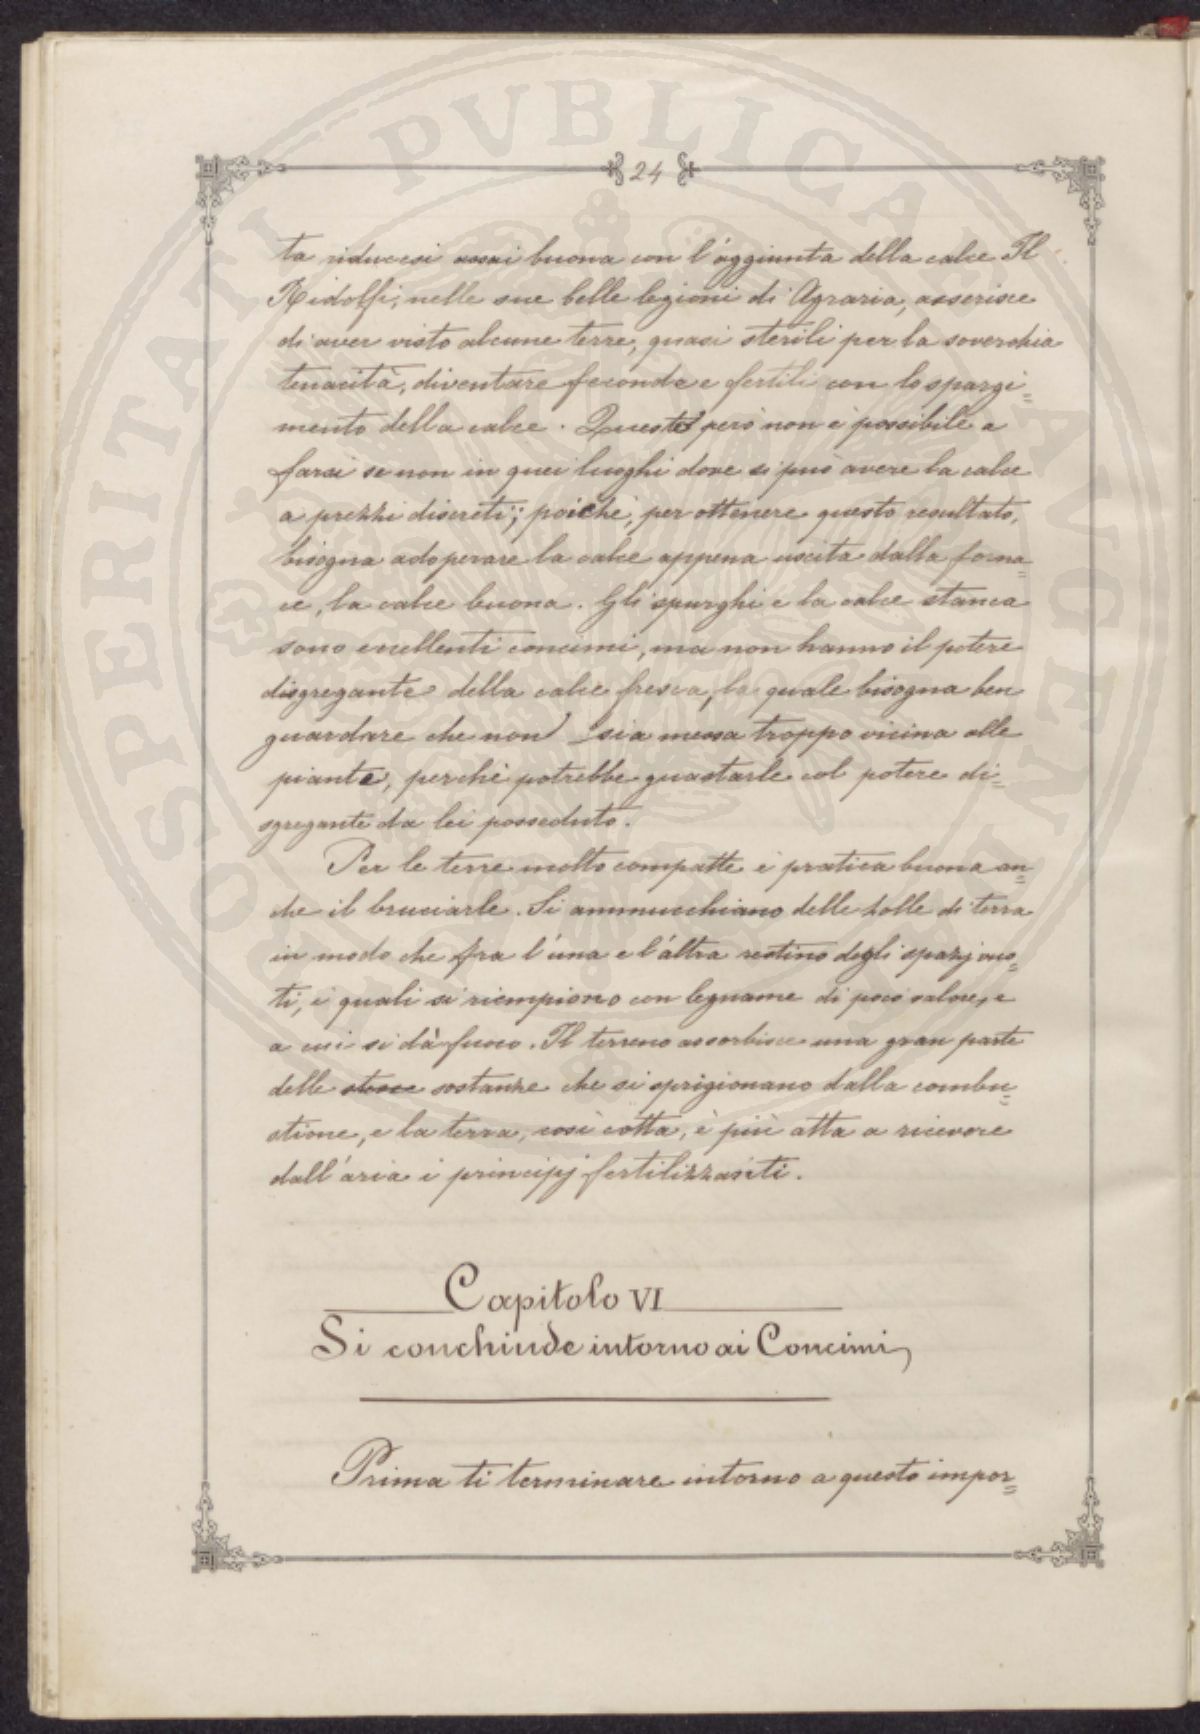 24
ta riducesi assai buona con l'aggiunta della calce Il
Ridolfi, nelle sue belle lezioni di Agraria, asserisce
di aver visto alcune terre, quasi sterili per la soverchia
tenacità, diventare feconde e fertili con lo spargi=
mento della calce. Questo però non è possibile a
farsi se non in quei luoghi dove si può avere la calce
a prezzi discreti; poichè, per ottenere questo resultato,
bisogna adoperare la calce appena uscita dalla forna=
ce, la calce buona. Gli spurghi e la calce stanca
sono eccellenti concimi, ma non hanno il potere
disgregante della calce fresca, la quale bisogna ben
guardare che non sia messa troppo vicina alle
piante, perchè potrebbe guastarle col potere di=
sgregante da lei posseduto.
Per le terre molto compatte è pratica buona an=
che il bruciarle. Si ammucchiano delle zolle di terra
in modo che fra l'una e l'altra restino degli spazj vuo=
ti, i quali si riempiono con legname di poco valore, e
a cui si dà fuoco. Il terreno assorbisce una gran parte
delle stesse sostanze che si sprigionano dalla combu=
stione, e la terra, così cotta, è più atta a ricevere
dall'aria i principj fertilizzanti.
Capitolo VI
Si conchiude intorno ai Concimi
Prima ti terminare intorno a questo impor=
PROSPERITATI PVBLICAE AVGENDAE